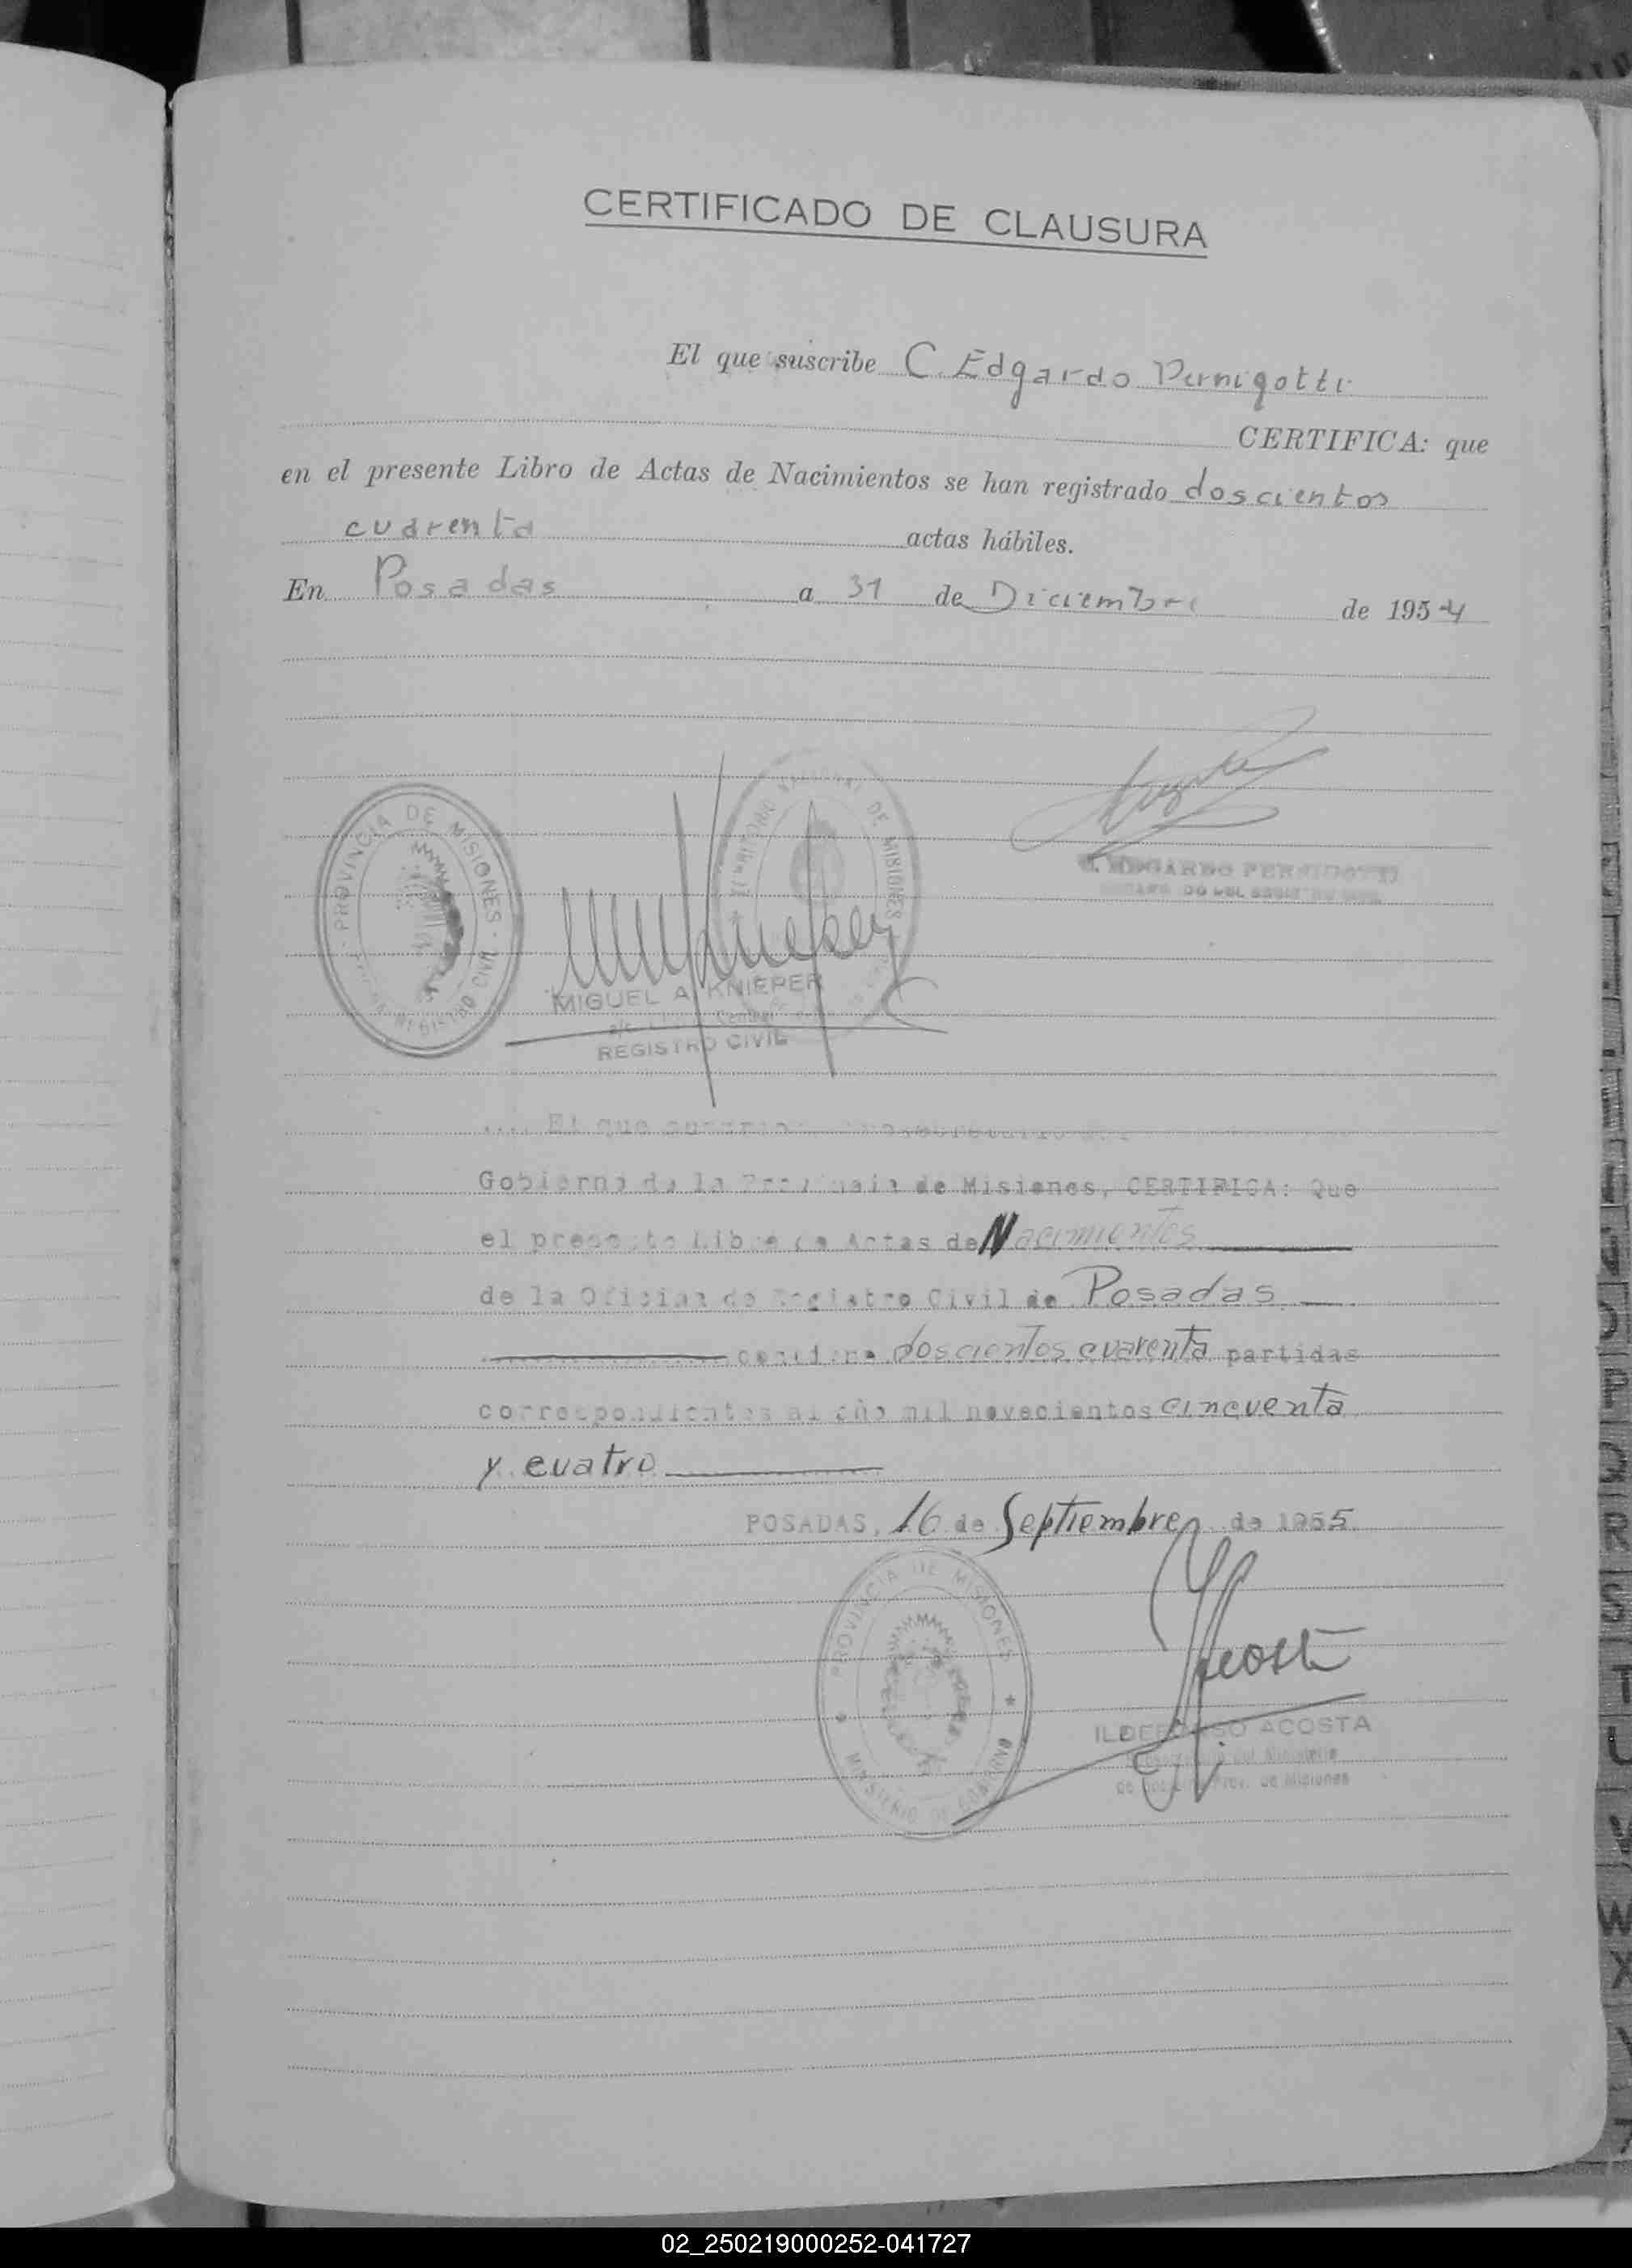 CERTIFICADO DE CLAUSURA
El que suscribe C. Edgardo Pernigotti
CERTIFICA: que
en el presente Libro de Actas de Nacimientos se han registrado doscientos
cuarenta actas hábiles.
En Posadas a 31 de Diciembre de 1954
PROVINCIA DE MISIONES
DE MISIONES
C. EDGARDO PERNIGOTTI
MIGUEL A. KNIEPER
REGISTRO CIVIL
El que
Gobierno de la Provincia de Misiones, CERTIFICA: Que
el presente Libro de Actas de Nacimientos
de la Oficina de Registro Civil de Posadas
contiene doscientos cuarenta partidas
correspondientes al año mil novecientos cincuenta
y cuatro
POSADAS, 16 de Septiembre de 1955
PROVINCIA DE MISIONES
MINISTERIO DE GOBIERNO
Acosta
ILDEFONSO ACOSTA
del Ministerio
de Gobierno Prov. de Misiones
P
R
S
T
U
W
X
02_250219000252-041727